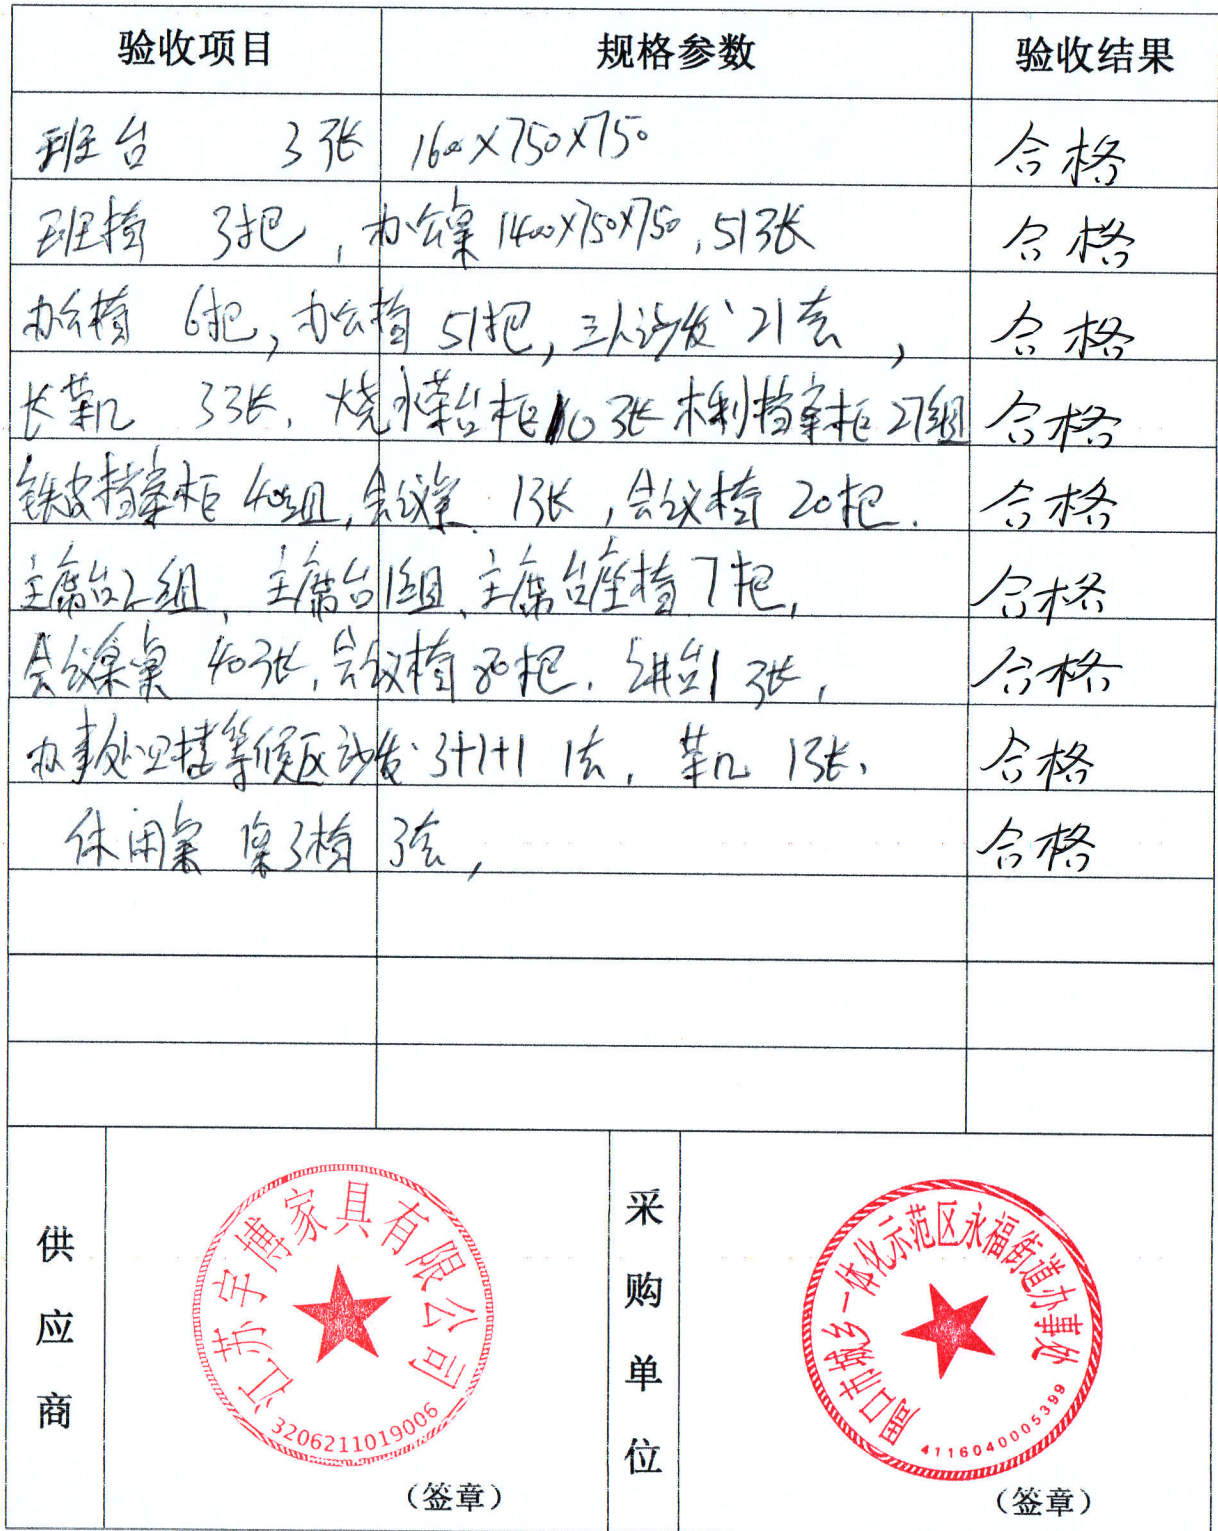 验收项目 规格参数 验收结果
班台 3张 1600×750×750 合格
班椅 3把, 办公桌 1400×750×750, 51张 合格
办公椅 6把, 办公椅 51把, 三人沙发 21套, 合格
长茶几 33张, 烧水茶台柜 10张 木制档案柜 27组 合格
铁皮档案柜 40组, 会议桌 1张, 会议椅 20把. 合格
主席台2组, 主席台1组, 主席台座椅 7把, 合格
会议条桌 40张, 会议椅 80把. 讲台1张, 合格
办事处 等候区沙发 3+1+1 1套, 茶几 1张, 合格
休闲桌 1桌3椅 3套, 合格
供应商
江苏宇博家具有限公司
3206211019006
(签章)
采购单位
周口市城乡一体化示范区永福街道办事处
4116040005399
(签章)